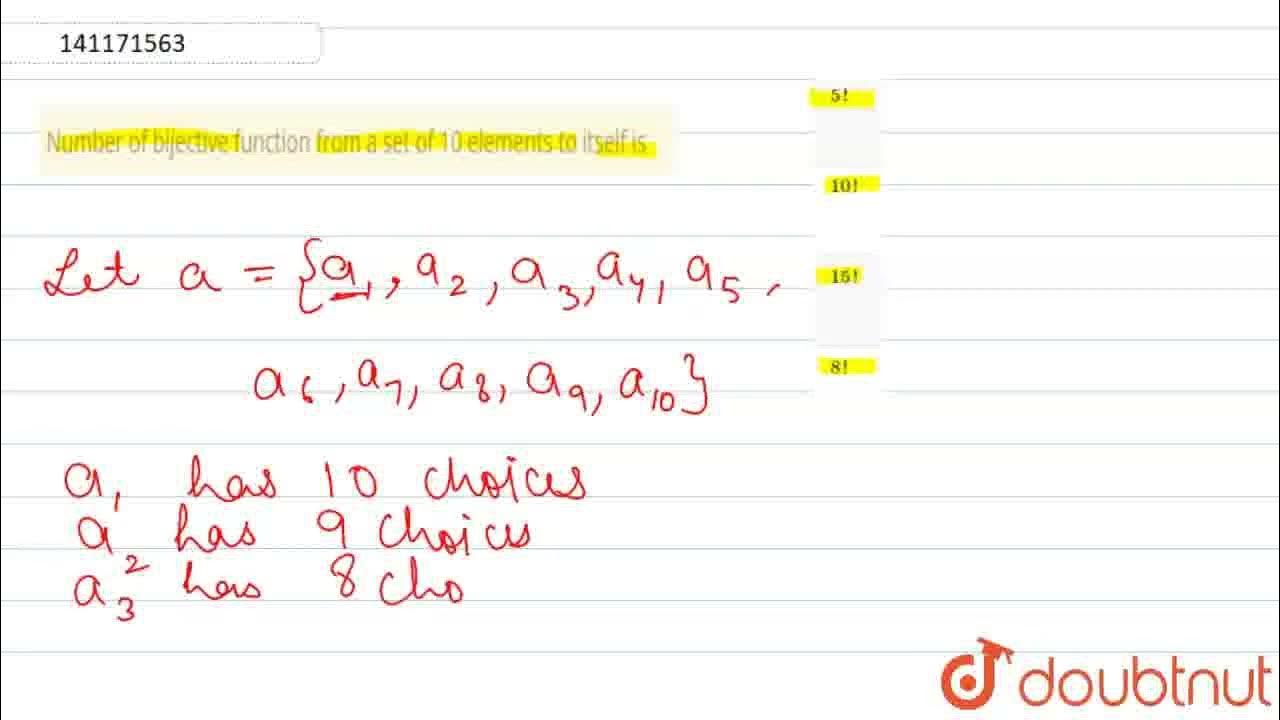 141171563
Number of bijective function from a set of 10 elements to itself is
5!
10!
15!
8!
Let a = {a₁, a₂, a₃, a₄, a₅,
a₆, a₇, a₈, a₉, a₁₀}
a₁ has 10 choices
a₂ has 9 choices
a₃ has 8 cho
doubtnut